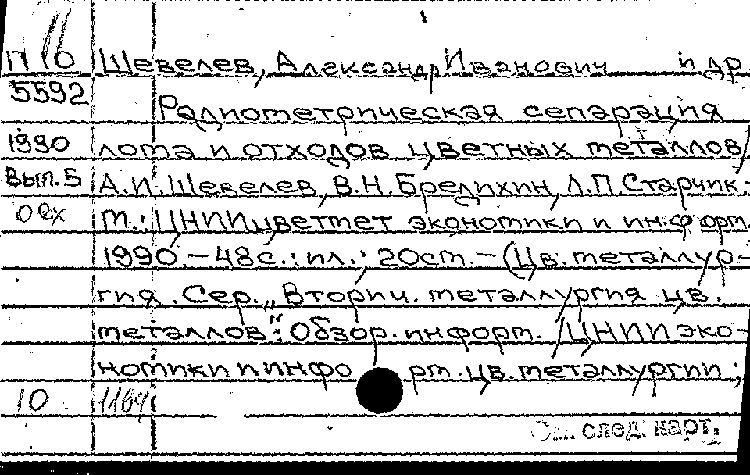 П 10 Шевелев, Александр Иванович и др
5592 Радиометрическая сепарация
1990 лома и отходов цветных металлов/
Вып.5 А.И. Шевелев, В.Н. Бредихин, Л.П. Старчик.-
М.: ЦНИИцветмет экономики и информ.
1990.-48с.:ил.; 20см.-(Цв. металлур-
гия. Сер. „Вторич. металлургия цв.
металлов": Обзор. информ. /ЦНИИ эко-
номики и информ. цв. металлургии;
10
См. след. карт.